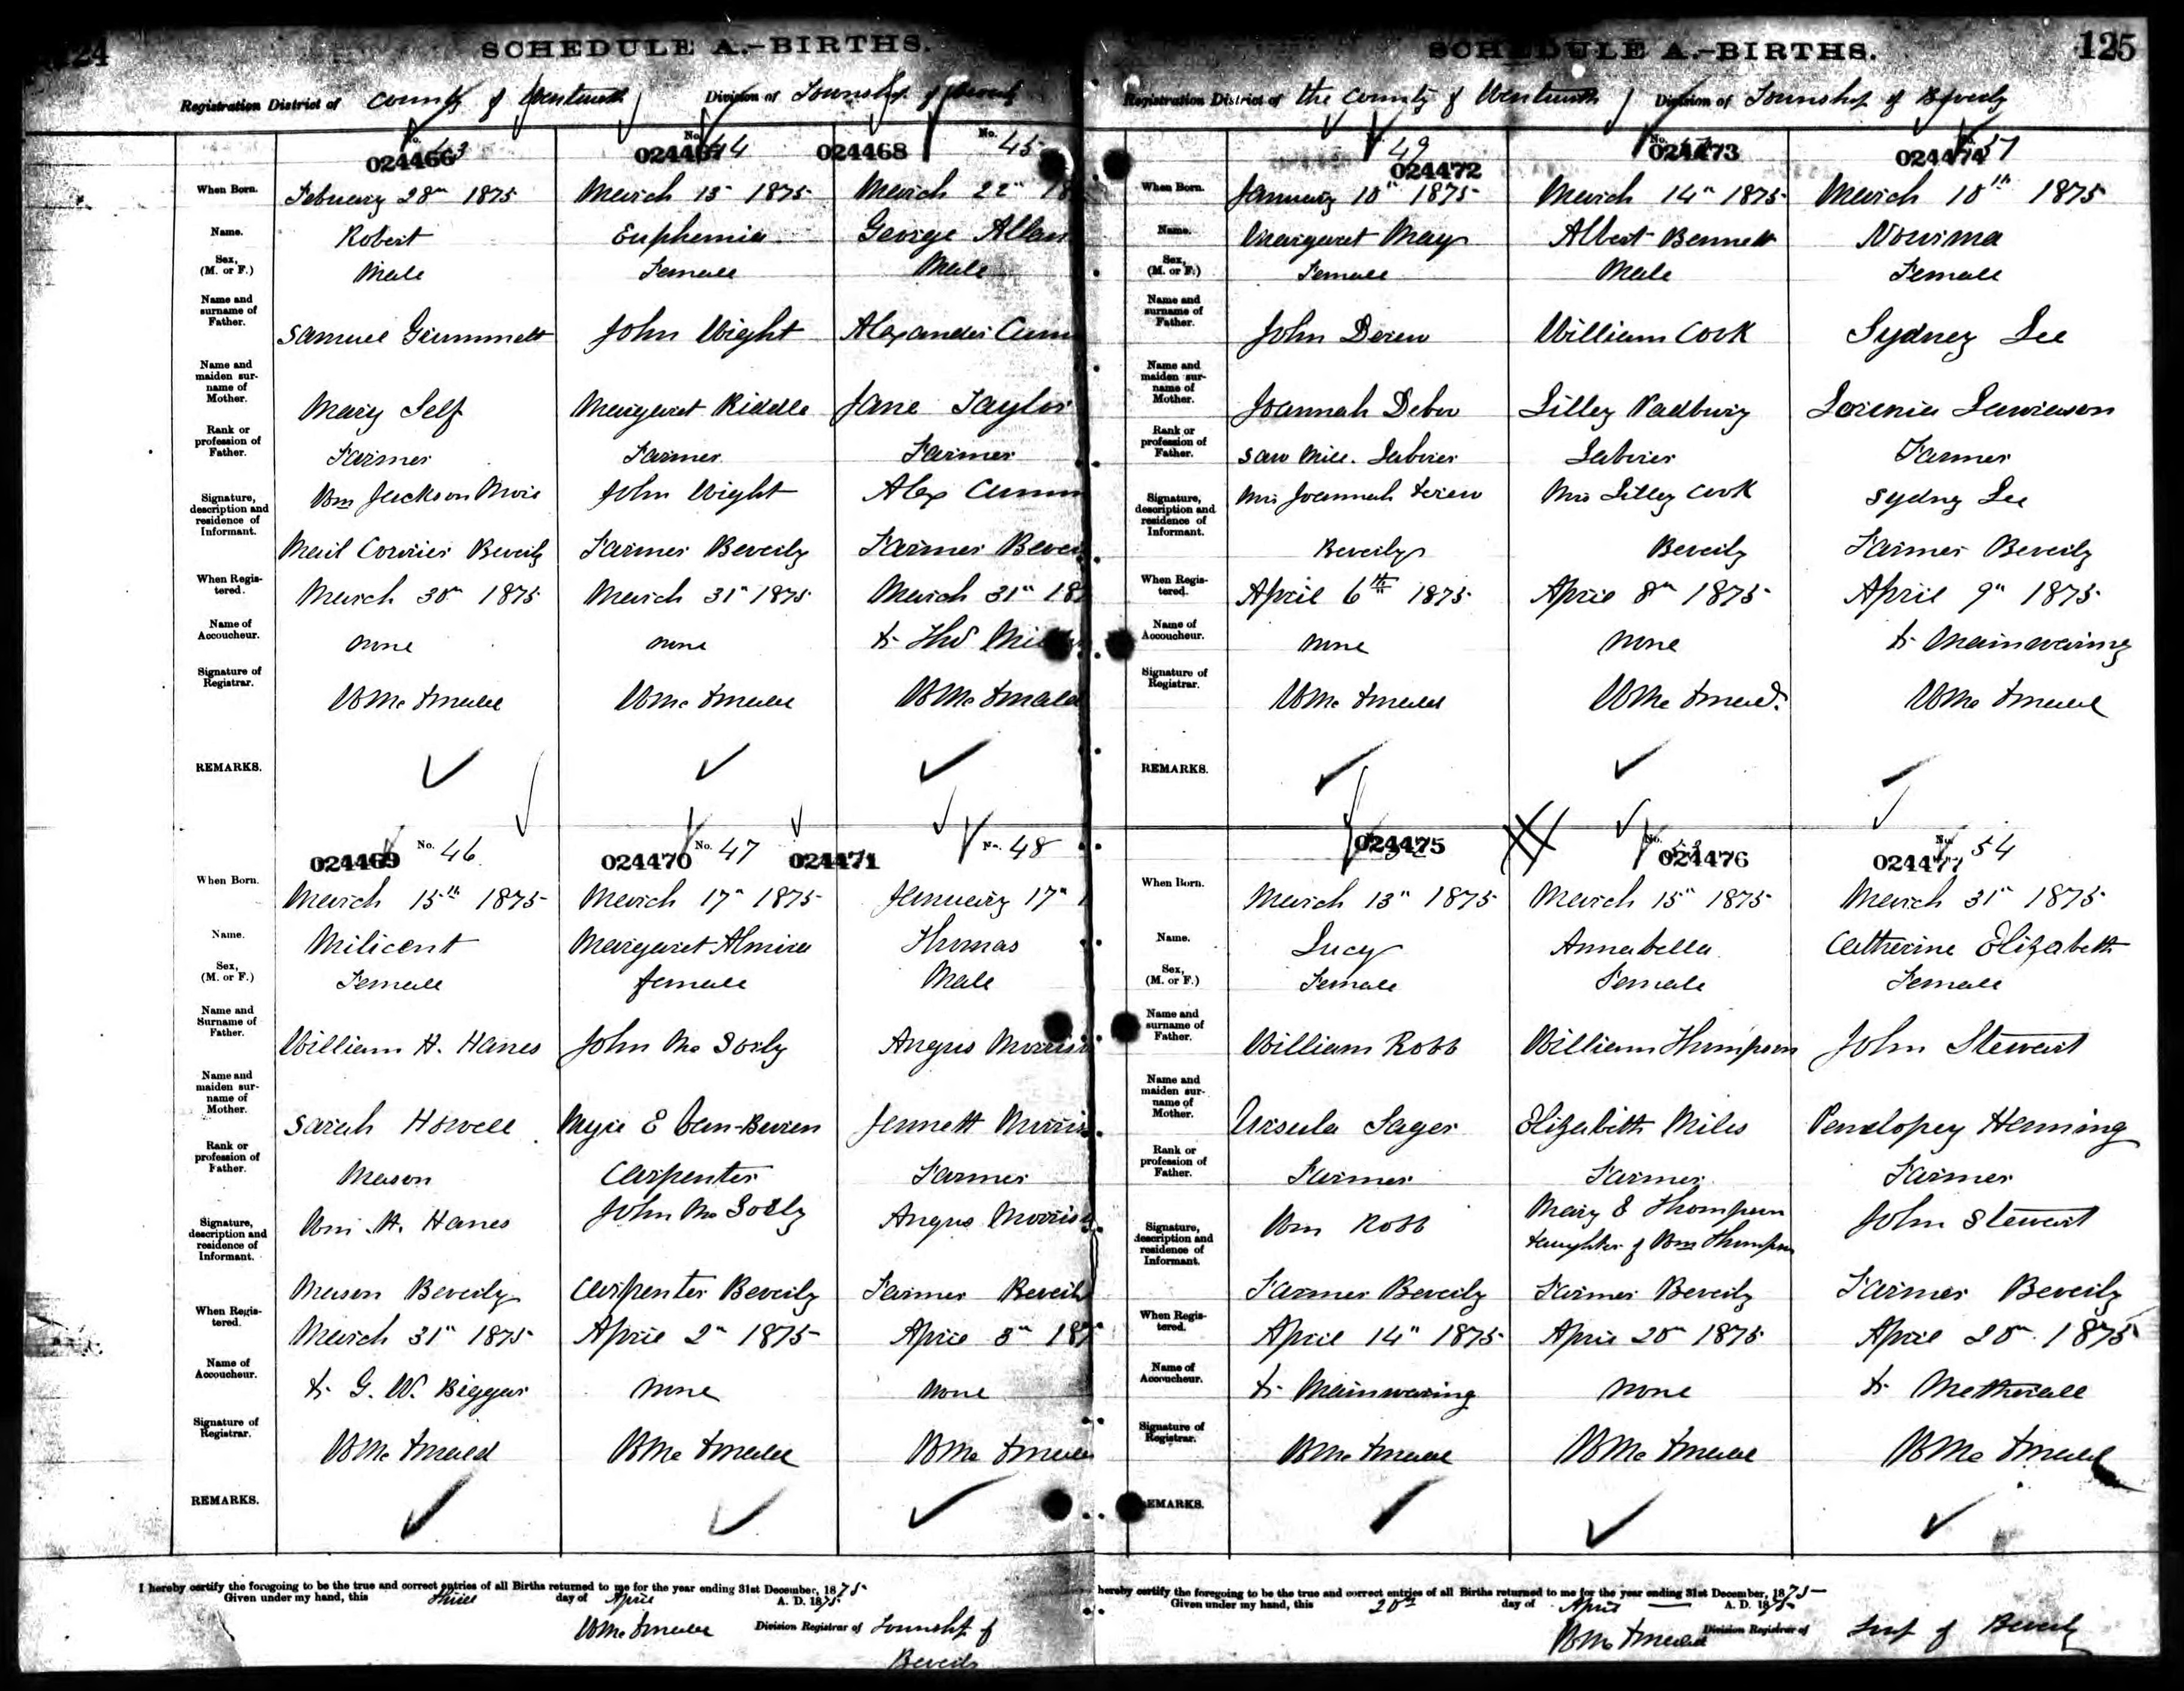 124
SCHEDULE A.-BIRTHS.
Registration District of County of Wentworth Division of Township of
No. 43 No. 44 No. 45
024466 024467 024468
When Born. February 28th 1875 March 15 1875 March 22" 18
Name. Robert Euphemia George Allan
Sex, (M. or F.) Male Female Male
Name and surname of Father. Samuel Grummett John Wight Alexander Cumm
Name and maiden surname of Mother. Mary Self Margaret Riddle Jane Taylor
Rank or profession of Father. Farmer Farmer Farmer
Signature, description and residence of Informant. Wm Jackson John Wight Alex Cumm
Mail Courrier Beverly Farmer Beverly Farmer Bever
When Registered. March 30th 1875 March 31" 1875 March 31" 187
Name of Accoucheur. none none Dr Thos
Signature of Registrar. WMc Donald WMc Donald WMc Donald
REMARKS.
No. 46 No. 47 No. 48
024469 024470 024471
When Born. March 15th 1875 March 17" 1875 January 17"
Name. Milicent Margaret Almira Thomas
Sex, (M. or F.) Female female Male
Name and Surname of Father. William H. Hanes John Mc Sorly Angus Morriso
Name and maiden surname of Mother. Sarah Howell E Van-Buren Jennett Morris
Rank or profession of Father. Mason Carpenter Farmer
Signature, description and residence of Informant. Wm H. Hanes John Mc Sorly Angus Morriso
Mason Beverly Carpenter Beverly Farmer Beverl
When Registered. March 31" 1875 April 2" 1875 April 3" 187
Name of Accoucheur. Dr G. W. Biggar none none
Signature of Registrar. WMc Donald WMc Donald WMc Donal
REMARKS.
I hereby certify the foregoing to be the true and correct entries of all Births returned to me for the year ending 31st December, 1875
Given under my hand, this Third day of April A. D. 1875
WMc Donald Division Registrar of Township of
Beverly
SCHEDULE A.-BIRTHS. 125
Registration District of the County of Wentworth Division of Township of Beverly
49 No. 51
024472 024473 024474
When Born. January 10" 1875 March 14" 1875 March 10th 1875
Name. Margaret May Albert Bennett Nowima
Sex, (M. or F.) Female Male Female
Name and surname of Father. John Deren William Cook Sydney Lee
Name and maiden surname of Mother. Joannah Lilley Padbury Lorenia Lawrason
Rank or profession of Father. Saw Mill. Laborer Laborer Farmer
Signature, description and residence of Informant. Mrs Joannah Deren Mrs Lilley Cook Sydney Lee
Beverly Beverly Farmer Beverly
When Registered. April 6th 1875 April 8th 1875 April 9" 1875
Name of Accoucheur. none none Dr Mainwaring
Signature of Registrar. WMc Donald WMc Donald WMc Donald
REMARKS.
No. No. 54
024475 024476 024477
When Born. March 13" 1875 March 15" 1875 March 31" 1875
Name. Lucy Annabella Catherine Elizabeth
Sex, (M. or F.) Female Female Female
Name and surname of Father. William Robb William Thompson John Stewart
Name and maiden surname of Mother. Ursula Sager Elizabeth Miles Penelopey Henning
Rank or profession of Father. Farmer Farmer Farmer
Signature, description and residence of Informant. Wm Robb Mary E Thompson John Stewart
daughter of Wm Thompson
Farmer Beverly Farmer Beverly Farmer Beverly
When Registered. April 14" 1875 April 20th 1875 April 20th 1875
Name of Accoucheur. Dr Mainwaring none Dr Metherall
Signature of Registrar. WMc Donald WMc Donald WMc Donald
REMARKS.
hereby certify the foregoing to be the true and correct entries of all Births returned to me for the year ending 31st December, 1875
Given under my hand, this 20th day of April A. D. 1875
WMc Donald Division Registrar of Twsp of Beverly